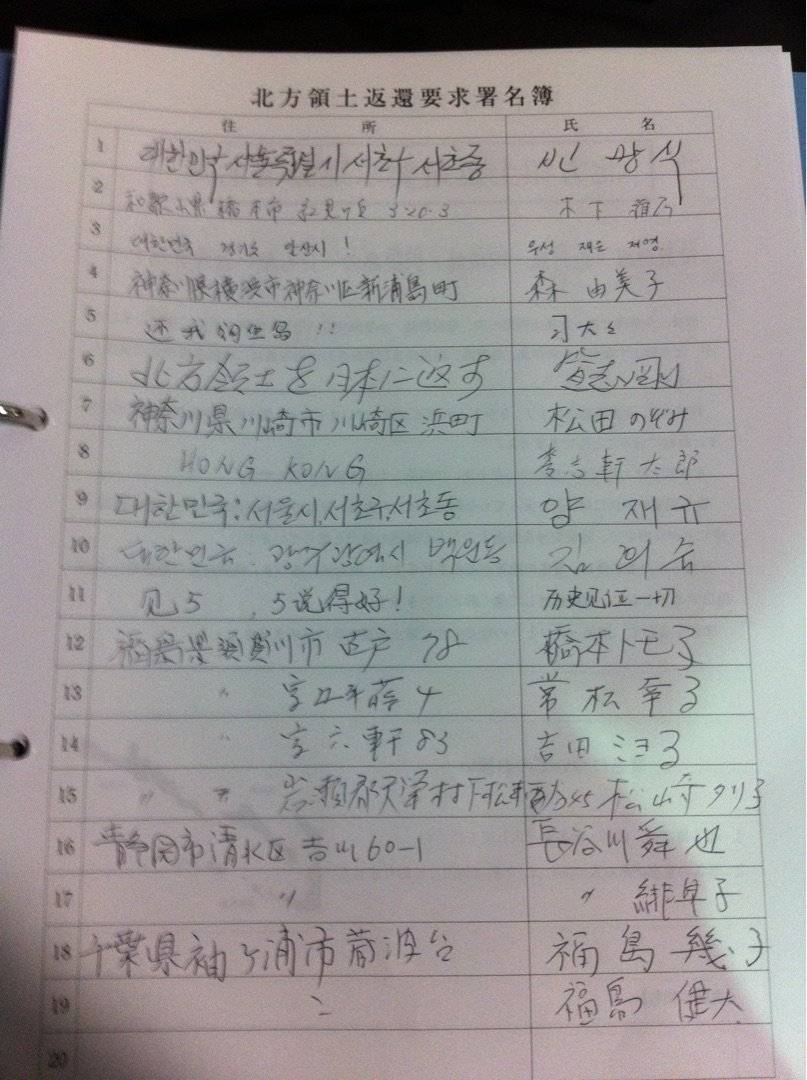 北方領土返還要求署名簿
住 所 氏 名
1 대한민국 서울특별시 서초구 서초동 신 광 식
2 320-3 木下
3 대한민국 경기도 안산시 ! 우성 재은 저영
4 神奈川県横浜市神奈川区新浦島町 森 由美子
5 还我钓鱼岛 !! 习大大
6 北方領土を日本に返す
7 神奈川県川崎市川崎区浜町 松田 のぞみ
8 HONG KONG 李志軒 太郎
9 대한민국: 서울시, 서초구, 서초동 양 재 규
10 대한민국 광주광역시 김
11 见5 , 5说得好! 历史见证一切
12 福島県須賀川市 古戸 78 橋本トモ子
13 〃 4 常松 幸子
14 〃 六軒 83 吉田 ミヨ子
15 〃 〃 岩瀬郡天栄村 45 松崎 クリ子
16 静岡市清水区 吉川60-1 長谷川舞也
17 〃 〃 緋早子
18 千葉県袖ヶ浦市蔵波台 福島 幾子
19 〃 福島 健大
20